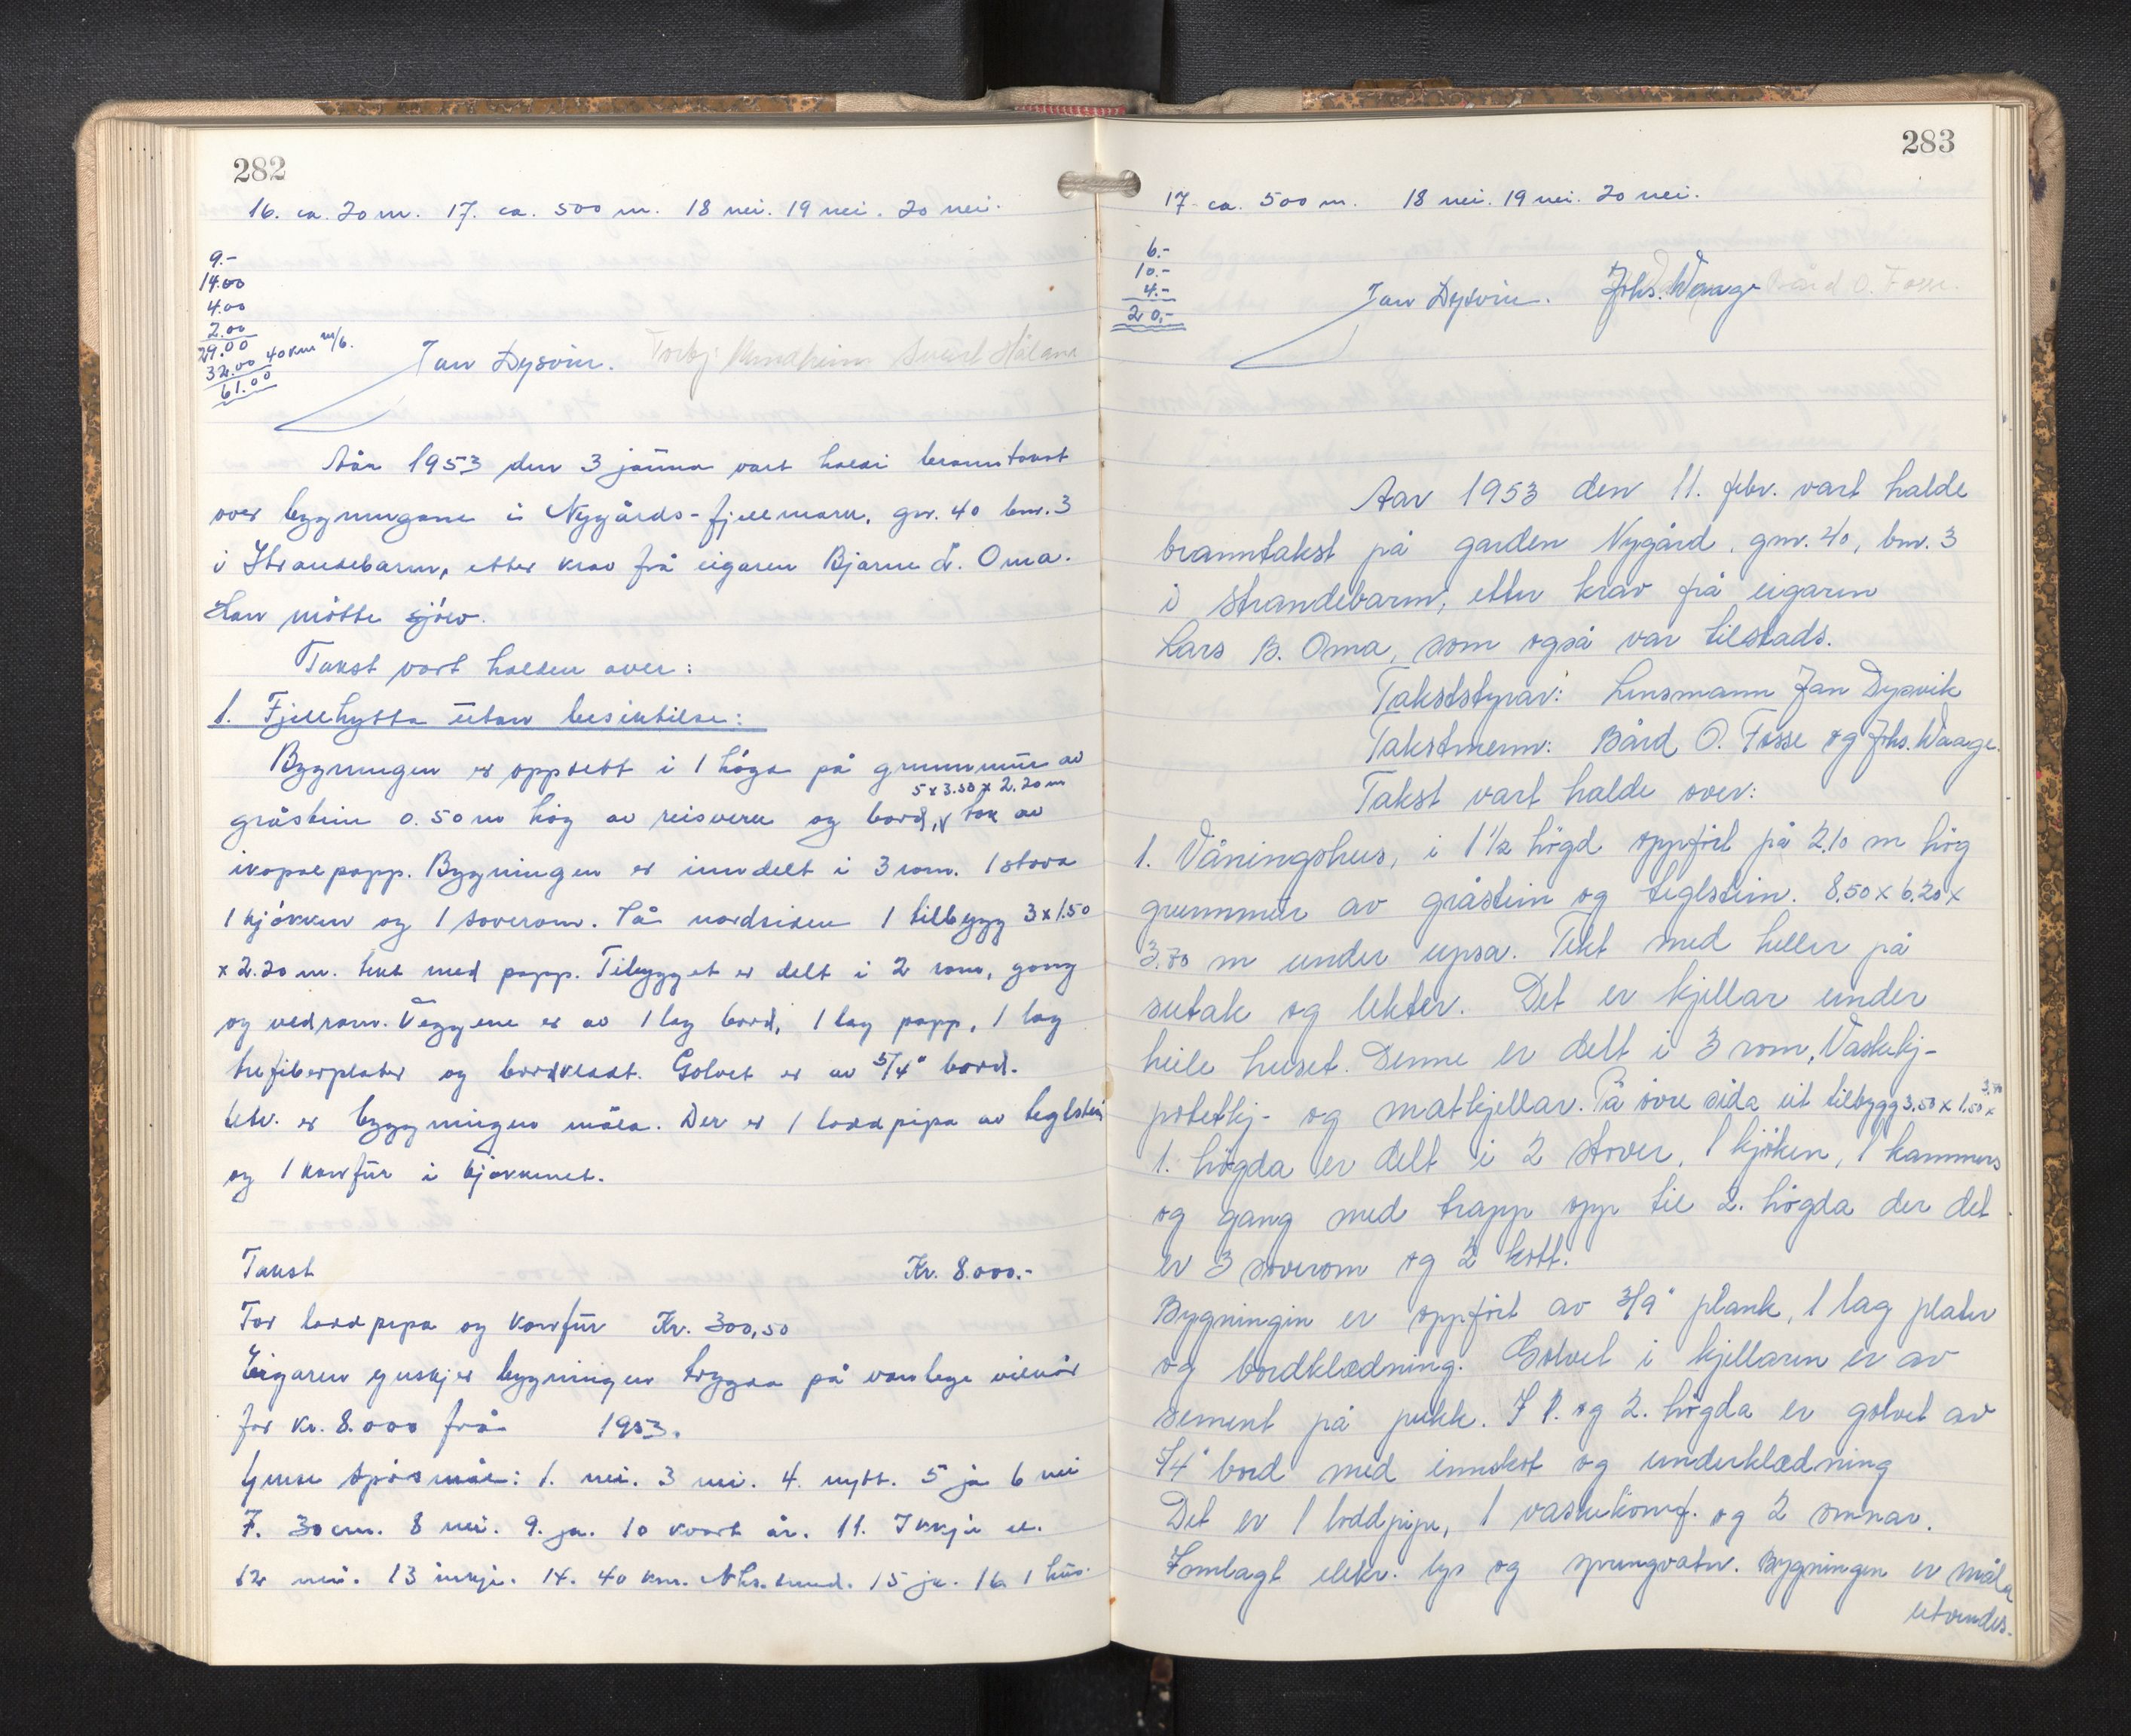 282
16. ca. 20 m. 17. ca. 500 m. 18 nei. 19 nei. 20 nei.
9.-
14.00
4.00
2.00
29.00
32.00 40 km m/b.
61.00
Jan Dysvik.
Aar 1953 den 3 januar vart haldi branntakst
over bygningane i Nygårds-fjellmark, gnr. 40 bnr. 3
i Strandebarm, etter krav frå eigaren Bjarne L. Oma.
Han møtte sjølv.
Takst vart halden over:
1. Fjellhytta utan besiktilse:
Bygningen er oppsett i 1 høgd på grunnmur av
5 x 3.50 x 2.20 m
gråstein 0.50 m høg av reisverk og bord, v tak av
icopalpapp. Bygningen er inndelt i 3 rom. 1 stova
1 kjøkken og 1 soverom. På nordsiden 1 tilbygg 3 x 1.50
x 2.20 m. tekt med papp. Tilbygget er delt i 2 rom, gang
og vedrom. Veggene er av 1 lag bord, 1 lag papp, 1 lag
trefiberplater og bordkledt. Golvet er av 5/4" bord.
Utv. er bygningen måla. Der er 1 loddpipa av teglstein
og 1 komfur i kjøkkenet.
Takst Kr. 8.000.-
For loddpipa og komfur Kr. 300,50
Eigaren ynskjer bygningen trygda på vanlege vilkår
for kr. 8.000 frå 1953.
Ymse spørsmål: 1. nei. 3 nei. 4. nytt. 5 ja 6 nei
7. 30 cm. 8 nei. 9. ja. 10 kvart år. 11. Ikkje el.
12 nei. 13 inkje. 14. 40 km. Nhs.sund. 15 ja. 16 1 hus.
283
17 ca. 500 m. 18 nei. 19 nei. 20 nei.
6.-
10.-
4.-
20.-
Jan Dysvik. Johs. Waage Bård O. Fosse.
Aar 1953 den 11. febr. vart halde
branntakst på garden Nygård, gnr. 40, bnr. 3
i Strandebarm, etter krav frå eigaren
Lars B. Oma, som også var tilstads.
Takststyrar: Lensmann Jan Dysvik
Takstmenn: Bård O. Fosse og Johs. Waage.
Takst vart halde over:
1. Våningshus, i 1 1/2 högd oppfört på 2.10 m hög
grunnmur av gråstein og teglstein. 8.50 x 6.20 x
3.70 m under upsa. Tekt med heller på
sutak og lekter. Det er kjellar under
heile huset. Denne er delt i 3 rom, Vaskekj-
potetkj- og matkjellar. På övre sida eit tilbygg 3.50 x 1.50 x 3.70
1. högda er delt i 2 stover, 1 kjöken, 1 kammers
og gang med trapp opp til 2. högda der det
er 3 soverom og 2 kott.
Bygningin er oppfört av 3/9" plank, 1 lag plater
og bordklædning. Golvet i kjellaren er av
sement på pukk. I 1. og 2. högda er golvet av
5/4" bord med innskot og underklædning
Det er 1 loddpipe, 1 vaskekomf. og 2 omnar.
Innlagt elekr. lys og springvatn. Bygningen er måla
utvendes.